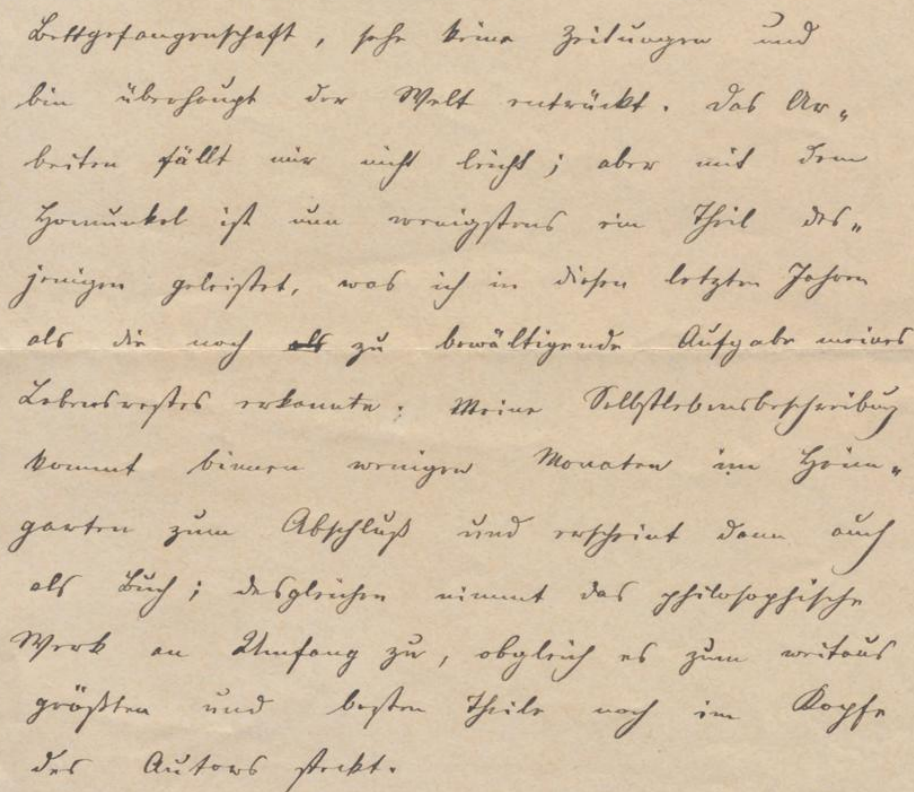 Bettgefangenschaft, sehe keine Zeitungen und
bin überhaupt der Welt entrückt. Das Ar„
beiten fällt mir nicht leicht; aber mit dem
Homunkel ist nun wenigstens ein Theil des„
jenigen geleistet, was ich in diesen letzten Jahren
als die noch als zu bewältigende Aufgabe meines
Lebensrestes erkannte. Meine Selbstlebensbeschreibung
kommt binnen wenigen Monaten im Heim„
garten zum Abschluß und erscheint dann auch
als Buch; desgleichen nimmt das philosophische
Werk an Umfang zu, obgleich es zum weitaus
größten und besten Theile noch im Kopfe
des Autors steckt.